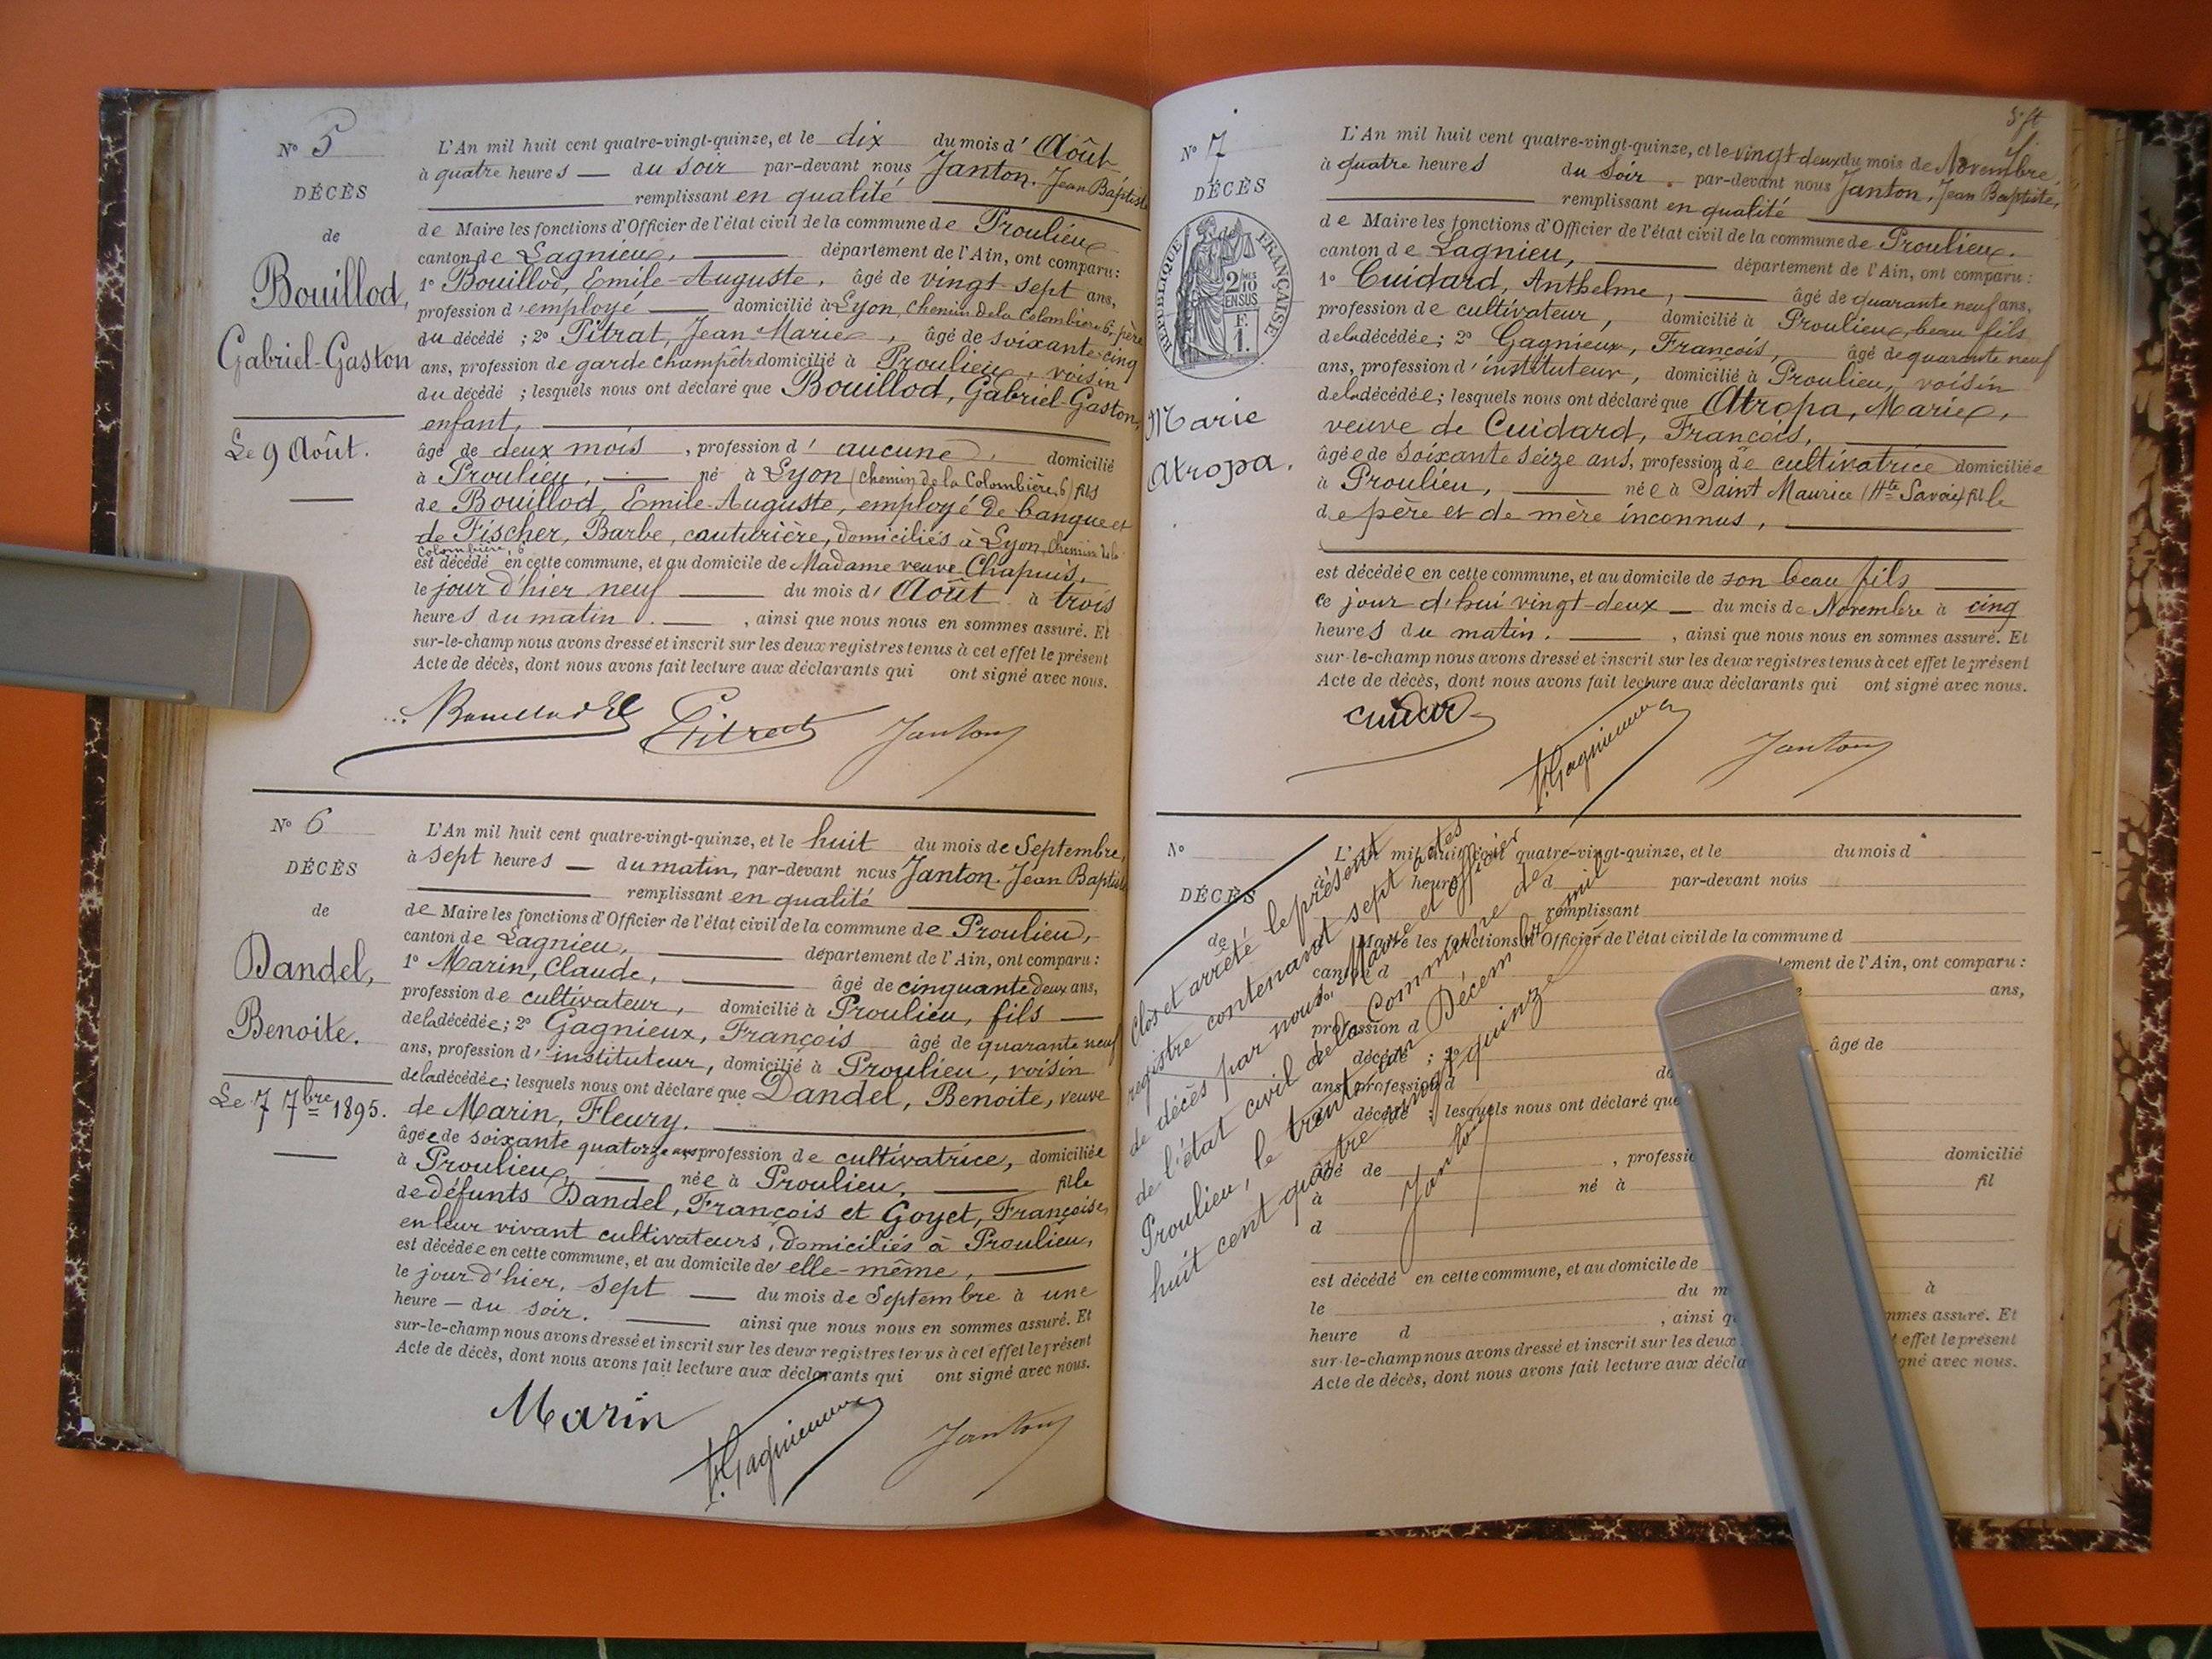 N° 5
DÉCÈS
de
Bouillod,
Gabriel-Gaston
Le 9 Août.
L'An mil huit cent quatre-vingt-quinze, et le dix du mois d' Août
à quatre heures — du soir par-devant nous Janton. Jean Baptiste
remplissant en qualité
de Maire les fonctions d'Officier de l'état civil de la commune de Proulieu
canton de Lagnieu, département de l'Ain, ont comparu :
1° Bouillod, Emile-Auguste, âgé de vingt sept ans,
profession d'employé domicilié à Lyon, chemin de la Colombière 6, père
du décédé ; 2° Pitrat, Jean-Marie, âgé de soixante-cinq
ans, profession de garde champêtre domicilié à Proulieu, voisin
du décédé ; lesquels nous ont déclaré que Bouillod, Gabriel-Gaston,
enfant,
âgé de deux mois, profession d' aucune, domicilié
à Proulieu, né à Lyon (chemin de la Colombière, 6) fils
de Bouillod, Emile-Auguste, employé de banque et
de Fischer, Barbe, couturière, domiciliés à Lyon, chemin de la
Colombière, 6
est décédé en cette commune, et au domicile de Madame veuve Chapuis,
le jour d'hier neuf du mois d' Août à trois
heures du matin. , ainsi que nous nous en sommes assuré. Et
sur-le-champ nous avons dressé et inscrit sur les deux registres tenus à cet effet le présent
Acte de décès, dont nous avons fait lecture aux déclarants qui ont signé avec nous.
Pitrat Janton
N° 6
DÉCÈS
de
Dandel,
Benoite.
Le 7 7bre 1895.
L'An mil huit cent quatre-vingt-quinze, et le huit du mois de Septembre,
à sept heures — du matin, par-devant nous Janton. Jean Baptiste
remplissant en qualité
de Maire les fonctions d'Officier de l'état civil de la commune de Proulieu,
canton de Lagnieu, département de l'Ain, ont comparu :
1° Marin, Claude, âgé de cinquante deux ans,
profession de cultivateur, domicilié à Proulieu, fils —
de la décédée ; 2° Gagnieux, François âgé de quarante neuf
ans, profession d'instituteur, domicilié à Proulieu, voisin
de la décédée ; lesquels nous ont déclaré que Dandel, Benoite, veuve
de Marin, Fleury.
âgée de soixante quatorze ans profession de cultivatrice, domiciliée
à Proulieu, née à Proulieu, fille
de défunts Dandel, François et Goyet, Françoise,
en leur vivant cultivateurs, domiciliés à Proulieu,
est décédée en cette commune, et au domicile de elle-même,
le jour d'hier, sept — du mois de Septembre à une
heure — du soir. ainsi que nous nous en sommes assuré. Et
sur-le-champ nous avons dressé et inscrit sur les deux registres tenus à cet effet le présent
Acte de décès, dont nous avons fait lecture aux déclarants qui ont signé avec nous.
Marin F. Gagnieux Janton
N° 7
DÉCÈS
RÉPUBLIQUE FRANÇAISE
2/10 EN SUS
Marie
Atropa.
L'An mil huit cent quatre-vingt-quinze, et le vingt-deux du mois de Novembre,
à quatre heures du soir. par-devant nous Janton, Jean Baptiste,
remplissant en qualité
de Maire les fonctions d'Officier de l'état civil de la commune de Proulieu.
canton de Lagnieu, département de l'Ain, ont comparu :
1° Cuidard, Anthelme, âgé de quarante neuf ans,
profession de cultivateur, domicilié à Proulieu, beau fils
de la décédée ; 2° Gagnieux, François, âgé de quarante neuf
ans, profession d'instituteur, domicilié à Proulieu, voisin
de la décédée ; lesquels nous ont déclaré que Atropa, Marie,
veuve de Cuidard, François,
âgée de soixante seize ans, profession de cultivatrice domiciliée
à Proulieu, née à Saint Maurice (Hte Savoie) fille
de père et de mère inconnus,
est décédée en cette commune, et au domicile de son beau fils
ce jour d'hui vingt-deux — du mois de Novembre à cinq
heures du matin. , ainsi que nous nous en sommes assuré. Et
sur-le-champ nous avons dressé et inscrit sur les deux registres tenus à cet effet le présent
Acte de décès, dont nous avons fait lecture aux déclarants qui ont signé avec nous.
F. Gagnieux Janton
N°
DÉCÈS
de
L'An mil huit cent quatre-vingt-quinze, et le du mois d
à heure d par-devant nous
remplissant
Maire les fonctions d'Officier de l'état civil de la commune d
canton d tement de l'Ain, ont comparu :
ans,
profession d
décédé ; 2° âgé de
ans, profession d
décédé ; lesquels nous ont déclaré que
âgé de , professio domicilié
à né à fil
d
est décédé en cette commune, et au domicile de
le du m à
heure d , ainsi q mmes assuré. Et
sur-le-champ nous avons dressé et inscrit sur les deux effet le présent
Acte de décès, dont nous avons fait lecture aux décla gné avec nous.
Clos et arrêté le présent
registre contenant sept actes
de décès par nous, Maire et officier
de l'état civil de la Commune de
Proulieu, le trente un Décembre mil
huit cent quatre vingt quinze
Janton